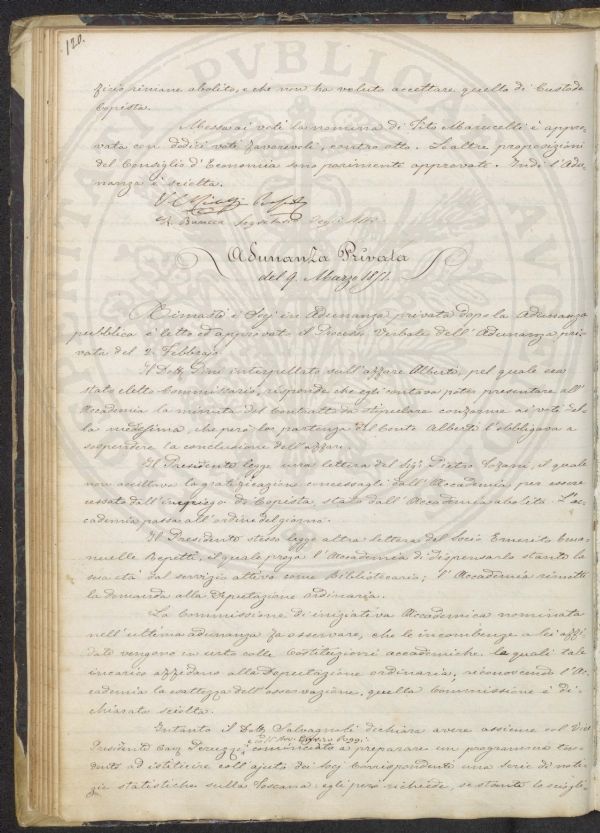 120.
ficio rimane abolito, e che non ha voluto accettare quello di Custode
Copista.
Messa ai voti la nomina di Tito Marucelli è appro-
vata con dodici voti favorevoli, contro otto. Le altre proposizioni
del Consiglio d'Economia sono parimente approvate. Indi l'Adu-
nanza è sciolta.
Segretario degli Atti
Adunanza Privata
del 9. Marzo 1851.
Rimasti i Socj in Adunanza privata dopo la Adunanza
pubblica è letto ed approvato il Processo Verbale dell'Adunanza pri-
vata del 2 Febbrajo
Il Dott. interpellato sull'affare Alberti, pel quale era
stato eletto Commissario, risponde che egli contava poter presentare all'
Accademia la minuta del Contratto da stipulare conforme ai voti del-
la medesima, che però la partenza del Conte Alberti l'obbligava a
sospendere la conclusione dell'affare.
Il Presidente legge una lettera del Sig. Pietro il quale
non accettava la gratificazione concessagli dall'Accademia per essere
cessato dall'impiego di Copista stato dall'Accademia abolito. L'Ac-
cademia passa all'ordine del giorno.
Il Presidente stesso legge altra lettera del Socio Emerito Ema-
nuelle Repetti, il quale prega l'Accademia di dispensarlo stante la
sua età dal servizio attivo come Bibliotecario; l'Accademia rimette
la domanda alla Deputazione ordinaria.
La Commissione di iniziativa Accademica nominata
nell'ultima adunanza fa osservare, che le incombenze a lei affi-
date vengono in urto colle Costituzioni accademiche, le quali tale
incarico affidano alla Deputazione ordinaria, riconoscendo l'Ac-
cademia la esattezza dell'osservazione, quella Commissione è di-
chiarata sciolta.
Intanto il Dott. Salvagnoli dichiara avere assieme col Vice
e coll'Avv. Poggi
Presidente Cav. cominciato a preparare un programma ten-
dente ad istituire coll'ajuto dei Socj Corrispondenti una serie di noti-
zie statistiche sulla Toscana: egli però richiede, se stante lo sciogli-